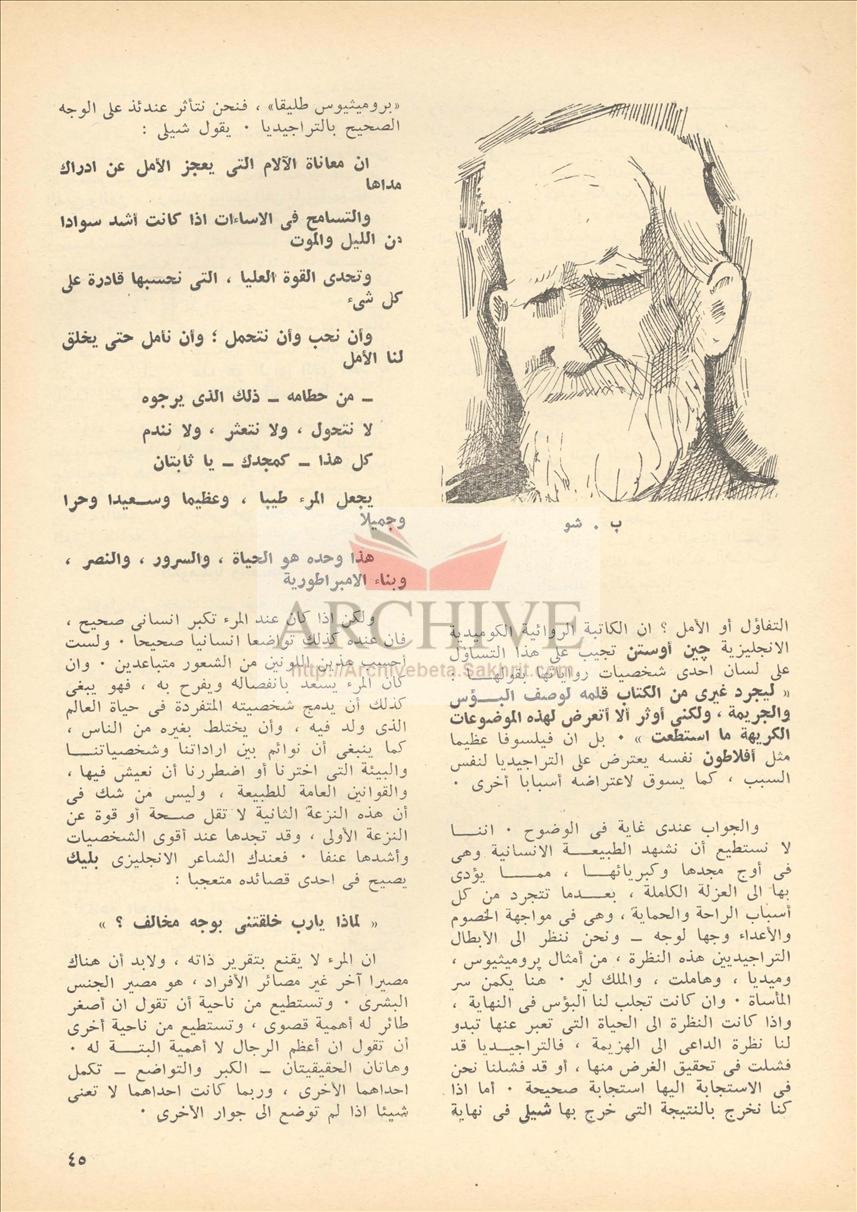 ب . شو
التفاؤل أو الأمل ؟ ان الكاتبة الروائية الكوميدية
الانجليزية چين أوستن تجيب على هذا التساؤل
على لسان احدى شخصيات رواياتها بقولهـــا :
« ليجرد غيرى من الكتاب قلمه لوصف البــؤس
والجريمة ، ولكنى أوثر ألا أتعرض لهذه الموضوعات
الكريهة ما استطعت » . بل ان فيلسوفا عظيما
مثل أفلاطون نفسه يعترض على التراجيديا لنفس
السبب ، كما يسوق لاعتراضه أسبابا أخرى .
والجواب عندى غاية فى الوضوح . اننـــا
لا نستطيع أن نشهد الطبيعـــة الانسانية وهى
فى أوج مجدها وكبريائهـــا ، ممـــا يؤدى
بها الى العزلة الكاملة ، بعـــدما تتجرد من كل
أسباب الراحة والحماية ، وهى فى مواجهة الخصوم
والأعداء وجها لوجه – ونحن ننظر الى الأبطال
التراجيديين هذه النظرة ، من أمثال پروميثيوس ،
وميديا ، وهاملت ، والملك لير . هنا يكمن سر
المأساة . وان كانت تجلب لنا البؤس فى النهاية ،
واذا كانت النظرة الى الحياة التى تعبر عنها تبدو
لنا نظرة الداعى الى الهزيمة ، فالتراجيــديا قد
فشلت فى تحقيق الغرض منها ، أو قد فشلنا نحن
فى الاستجابة اليها استجابة صحيحة . أما اذا
كنا نخرج بالنتيجة التى خرج بها شيلى فى نهاية
«بروميثيوس طليقا» ، فنحن نتأثر عندئذ على الوجه
الصحيح بالتراجيديا . يقول شيلى :
ان معاناة الآلام التى يعجز الأمل عن ادراك
مداها
والتسامح فى الاساءات اذا كانت أشد سوادا
من الليل والموت
وتحدى القوة العليا ، التى نحسبها قادرة على
كل شىء
وأن نحب وأن نتحمل ؛ وأن نأمل حتى يخلق
لنا الأمل
– من حطامه – ذلك الذى يرجوه
لا نتحول ، ولا نتعثر ، ولا نندم
كل هذا – كمجدك – يا ثابتان
يجعل المرء طيبا ، وعظيما وســعيدا وحرا
وجميلا
هذا وحده هو الحياة ، والسرور ، والنصر ،
وبناء الامبراطورية
ولكن اذا كان عند المرء تكبر انسانى صحيح ،
فان عنده كذلك تواضعا انسانيا صحيحا . ولست
أحسب هذين اللونين من الشعور متباعدين . وان
كان المرء يسعد بانفصاله ويفرح به ، فهو يبغى
كذلك أن يدمج شخصيته المتفردة فى حياة العالم
الذى ولد فيه ، وأن يختلط بغيره من الناس ،
كما ينبغى أن نوائم بين اراداتنا وشخصياتنـــا
والبيئة التى اخترنا أو اضطررنا أن نعيش فيها ،
والقوانين العامة للطبيعة ، وليس من شك فى
أن هذه النزعة الثانية لا تقل صــحة أو قوة عن
النزعة الأولى ، وقد تجدها عند أقوى الشخصيات
وأشدها عنفا . فعندك الشاعر الانجليزى بليك
يصيح فى احدى قصائده متعجبا :
« لماذا يارب خلقتنى بوجه مخالف ؟ »
ان المرء لا يقنع بتقرير ذاته ، ولابد أن هناك
مصيرا آخر غير مصائر الأفراد ، هو مصير الجنس
البشرى . وتستطيع من ناحية أن تقول ان أصغر
طائر له أهمية قصوى ، وتستطيع من ناحية أخرى
أن تقول ان أعظم الرجال لا أهمية البتـــة له .
وهاتان الحقيقيتان – الكبر والتواضع – تكمل
احداهما الأخرى ، وربما كانت احداهما لا تعنى
شيئا اذا لم توضع الى جوار الأخرى .
٤٥
ARCHIVE
http://Archivebeta.Sakhrit.com